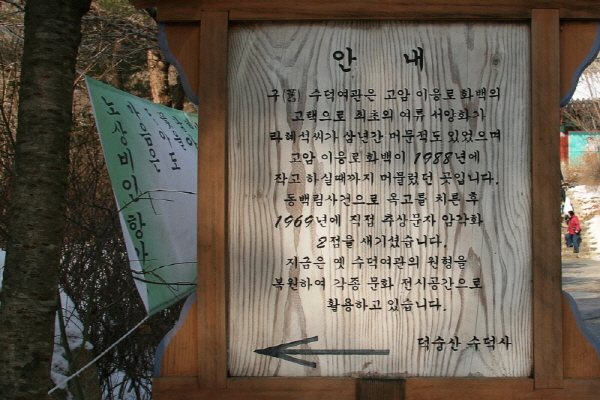 안 내
구(舊) 수덕여관은 고암 이응로 화백의
고택으로 최초의 여류 서양화가
라혜석씨가 삼년간 머문적도 있었으며
고암 이응로 화백이 1988년에
작고 하실때까지 머물렀던 곳입니다.
동백림사건으로 옥고를 치른 후
1969년에 직접 추상문자 암각화
2점을 새기셨습니다.
지금은 옛 수덕여관의 원형을
복원하여 각종 문화 전시공간으로
활용하고 있습니다.
덕숭산 수덕사
마음은
노상비인 항아